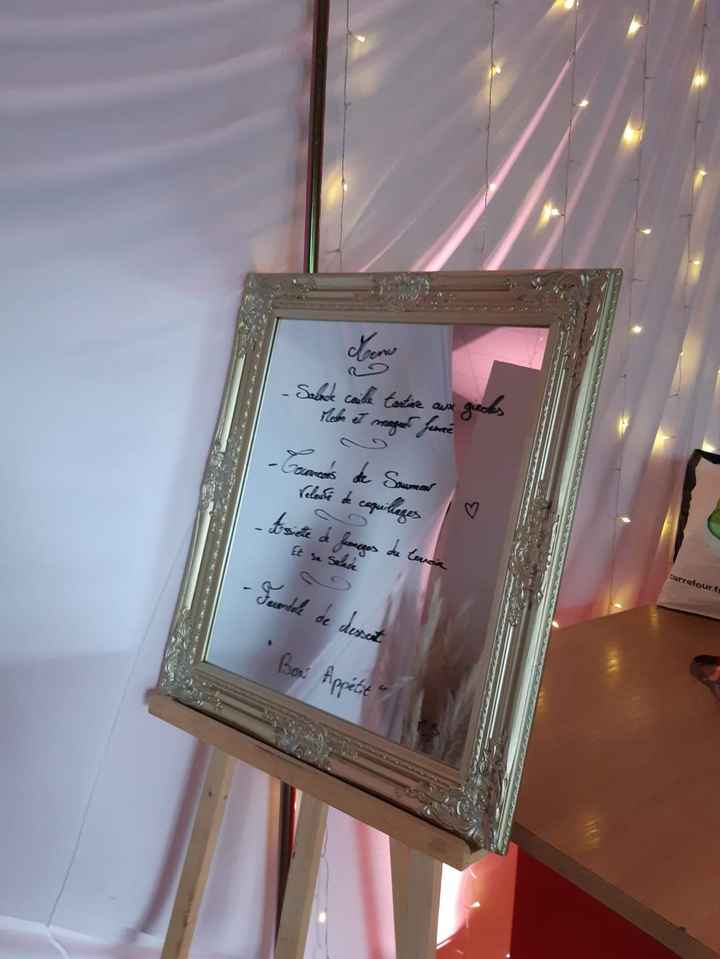 Menu
- Salade caille tartare aux girolles
Melon et magret fumé
- Tournedos de Saumon
Velouté de coquillages
- Assiette de fromages du terroir
Et sa salade
- Farandole de dessert
" Bon Appétit "
carrefour.f